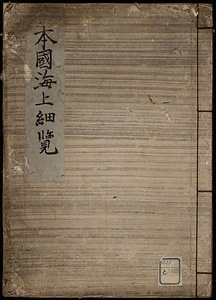 本國海上細覧